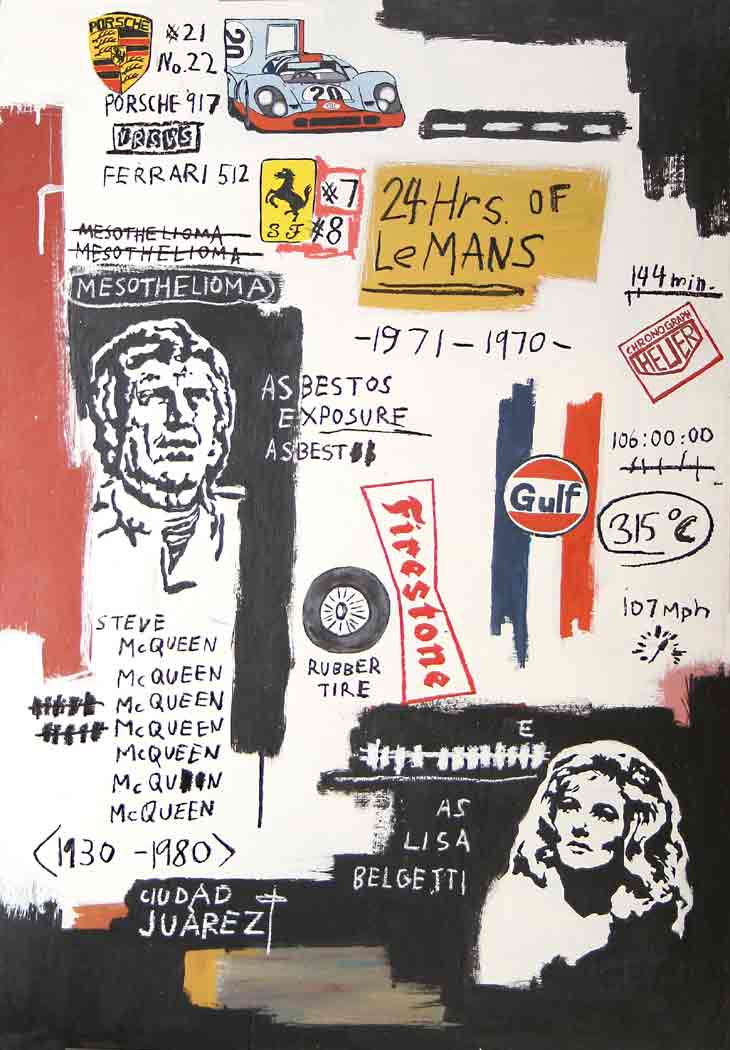 PORSCHE
*21
No.22
PORSCHE '917
VRSUS
FERRARI 512
20
20
S F
*7
#8
24 Hrs. OF
Le MANS
-1971-1970-
144 min.
CHRONOGRAPH
HEUER
MESOTHELIOMA
MESOTHELIOMA
MESOTHELIOMA
ASBESTOS
EXPOSURE
ASBEST
106:00:00
Gulf
315°C
107 Mph
Firestone
RUBBER
TIRE
STEVE
McQUEEN
McQUEEN
McQUEEN
McQUEEN
McQUEEN
McQUEEN
McQUEEN
<1930 -1980>
E
AS
LISA
BELGETTI
CIUDAD
JUÁREZ